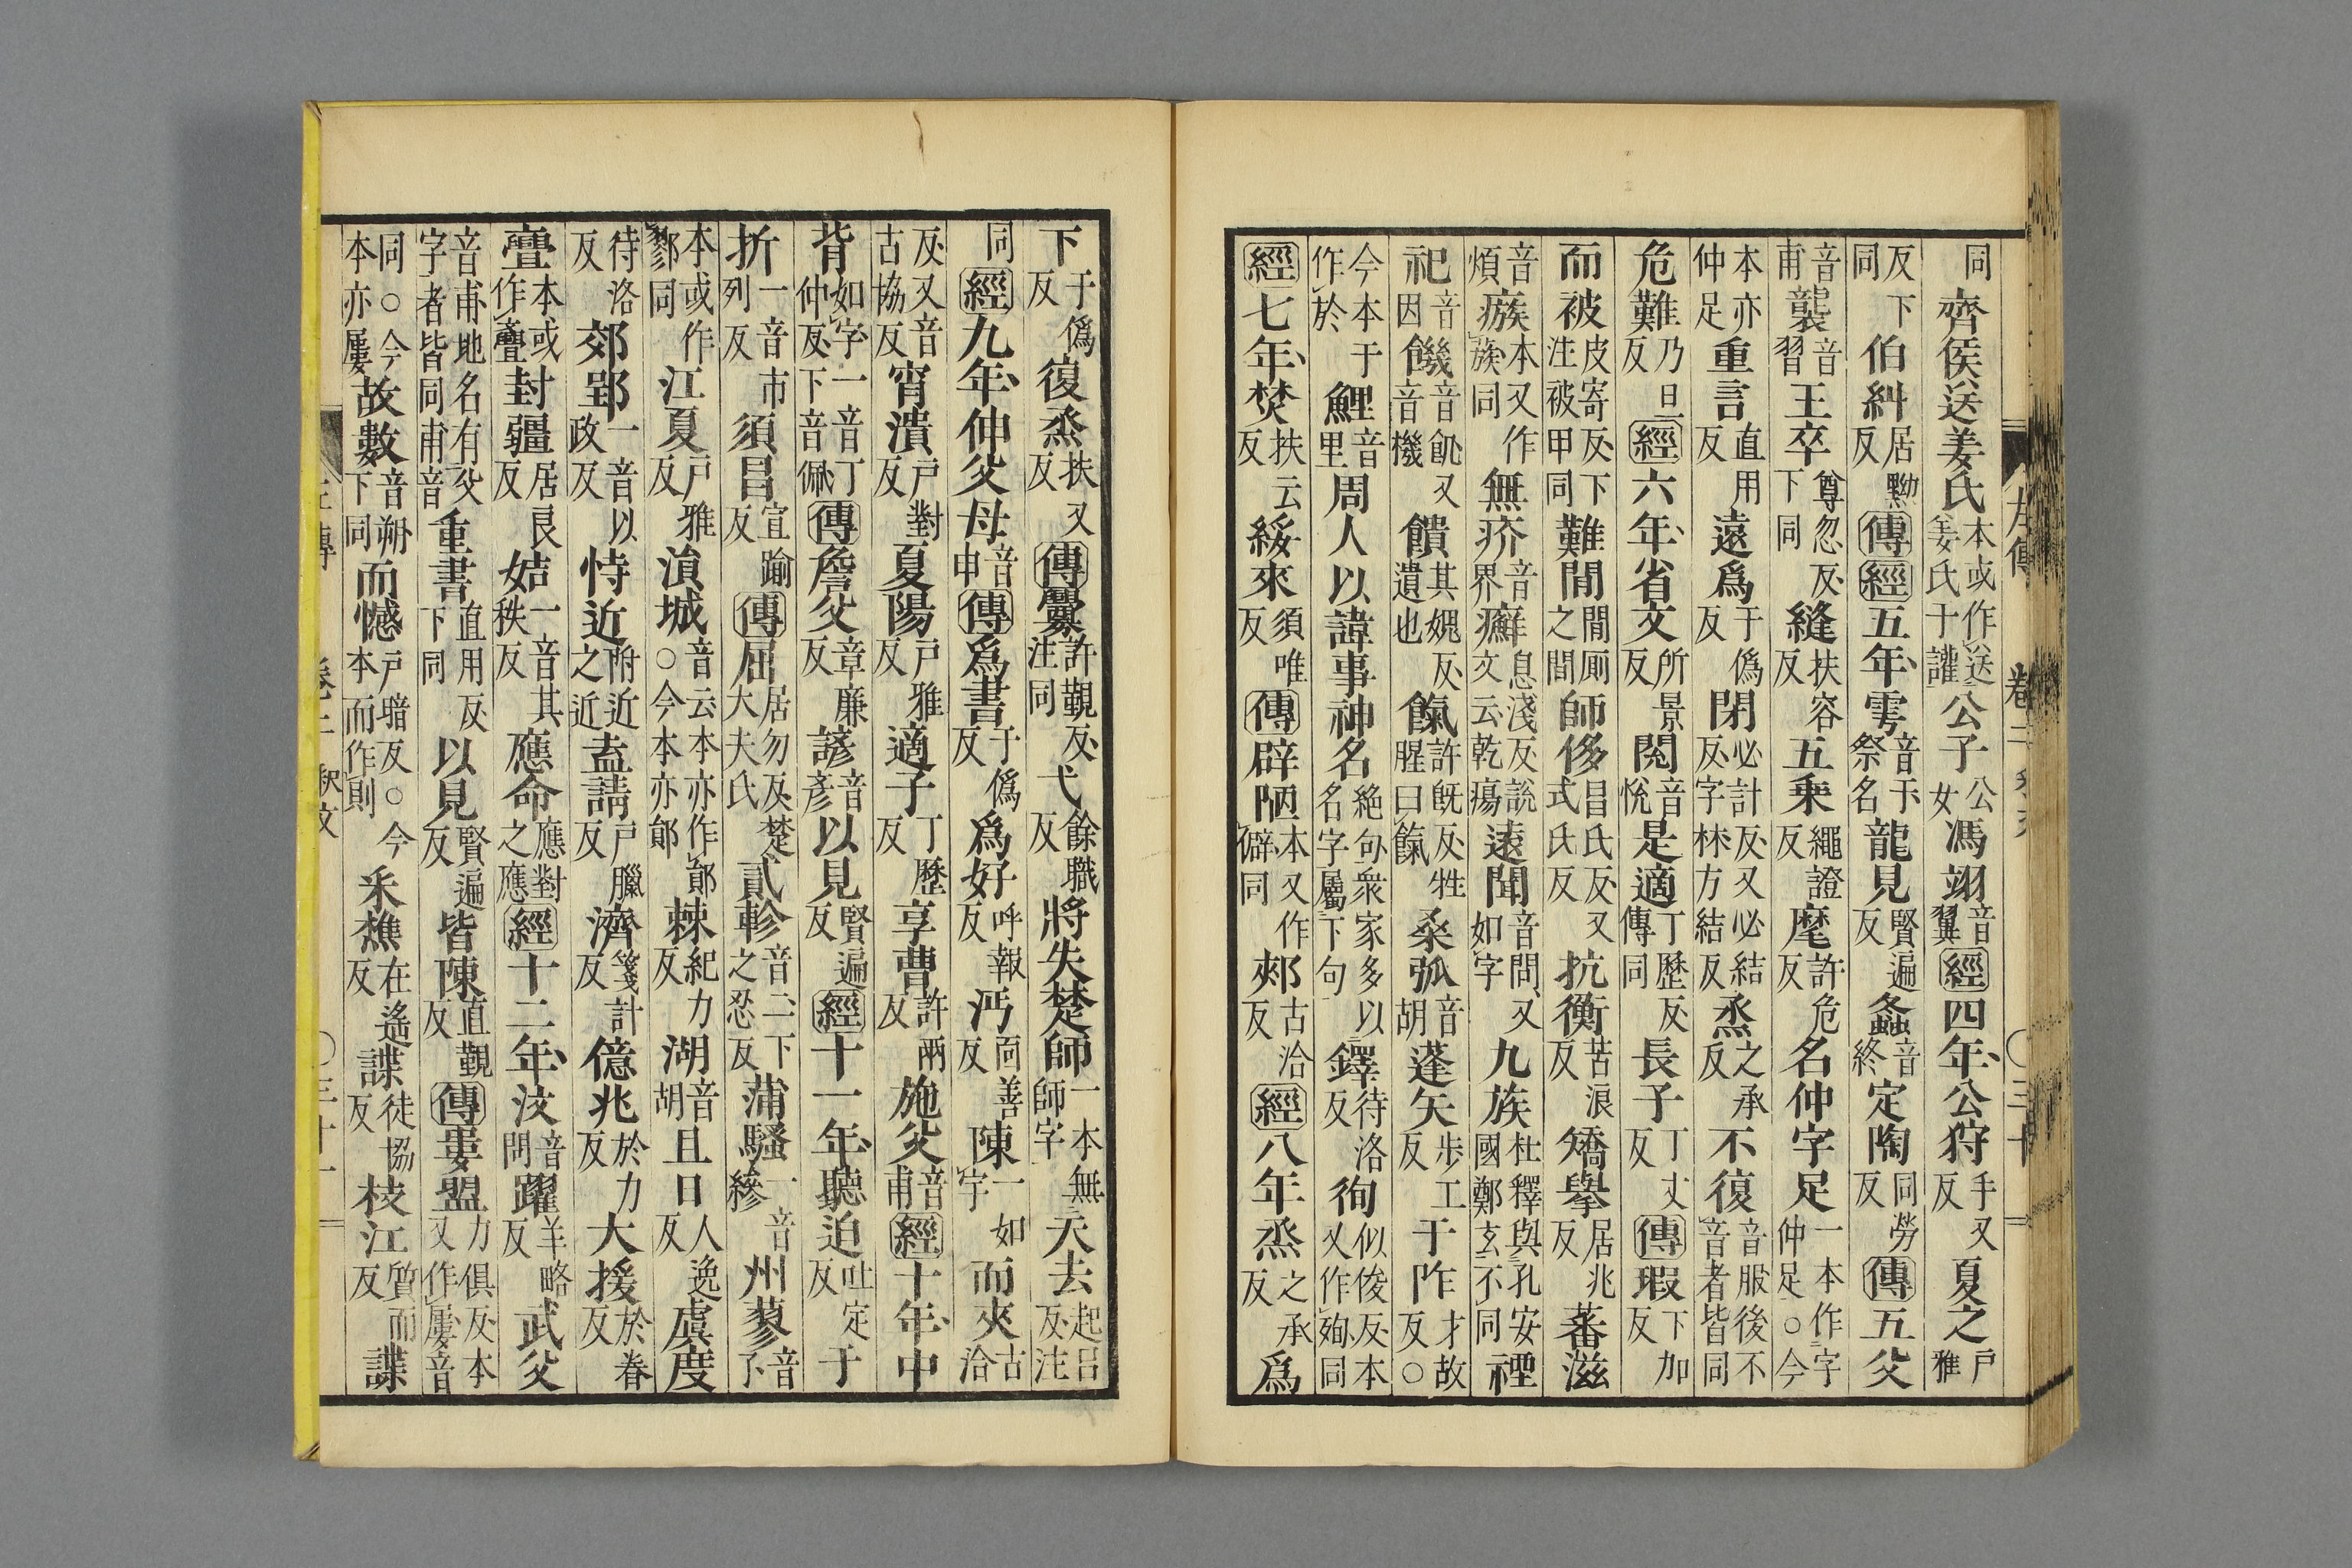 同齊侯送姜氏本或作送姜氏十讙公子公女馮翊音翼經四年公狩手又反夏之戶雅
反下同伯糾居黝反傳經五年雩音于祭名龍見賢遍反螽音終定陶同勞反傳五父
音甫襲音習王卒尊忽反下同縫扶容反五乘繩證反麾許危反名仲字足一本作字仲足○今
本亦仲足重言直用反遠爲于僞反閉必計反又必結反字林方結反烝之承反不復音服後不音者皆同
危難乃旦反經六年省文所景反閱音悅是適丁歷反傳同長子丁丈反傳瑕下加反
而被皮寄反注被甲同下難閒閒厠之間師侈昌氏反又式氏反抗衡苦浪反矯舉居兆反蕃滋
音煩瘯本又作蔟同無疥音界癬息淺反說文云乾瘍遠聞音問又如字九族杜釋與孔安國鄭玄不同禋
祀音因饑音飢又音機饋其媿反遺也餼許旣反牲腥曰餼桑弧音胡蓬矢步工反于阼才故反○
今本于作於鯉音里周人以諱事神名絶句衆家多以名字屬下句鐸待洛反徇似俊反本又作殉同
經七年焚扶云反綏來須唯反傳辟陋本又作僻同郟古洽反經八年烝之承反爲
下于僞反復烝扶又反傳釁許覲反注同弋餘職反將失楚師一本無師字天去起呂反注
同經九年仲父母音申傳爲書于僞反爲好呼報反沔面善反陳一如字而夾古洽
反又音古協反宵潰戶對反夏陽戶雅反適子丁歷反享曹許兩反施父音甫經十年中
背如字一音仲反下音佩傳詹父章廉反諺音彥以見賢遍反經十一年聽迫吐定反于
折一音市列反須昌宣踰反傳屈居勿反楚大夫氏貳軫音二下之忍反蒲騷一音縿州蓼音了
本或作鄝同江夏戶雅反溳城音云本亦作鄖○今本亦鄖棘紀力反湖音胡且日人逸反虞度
待洛反郊郢一音以政反恃近附近之近盍請戶臘反濟箋計反億兆於力反大援於眷反
亹本或作亹封疆居良反姞一音其秩反應命應對之應經十二年汶音問躍羊略反武父
音甫地名有父字者皆同甫音重書直用反下同以見賢遍反皆陳直覲反傳婁盟力俱反本又作屢音
同○今本亦屢故數音朔下同而憾戶暗反○今本而作則采樵在遙反諜徒協反枝江質而反諜